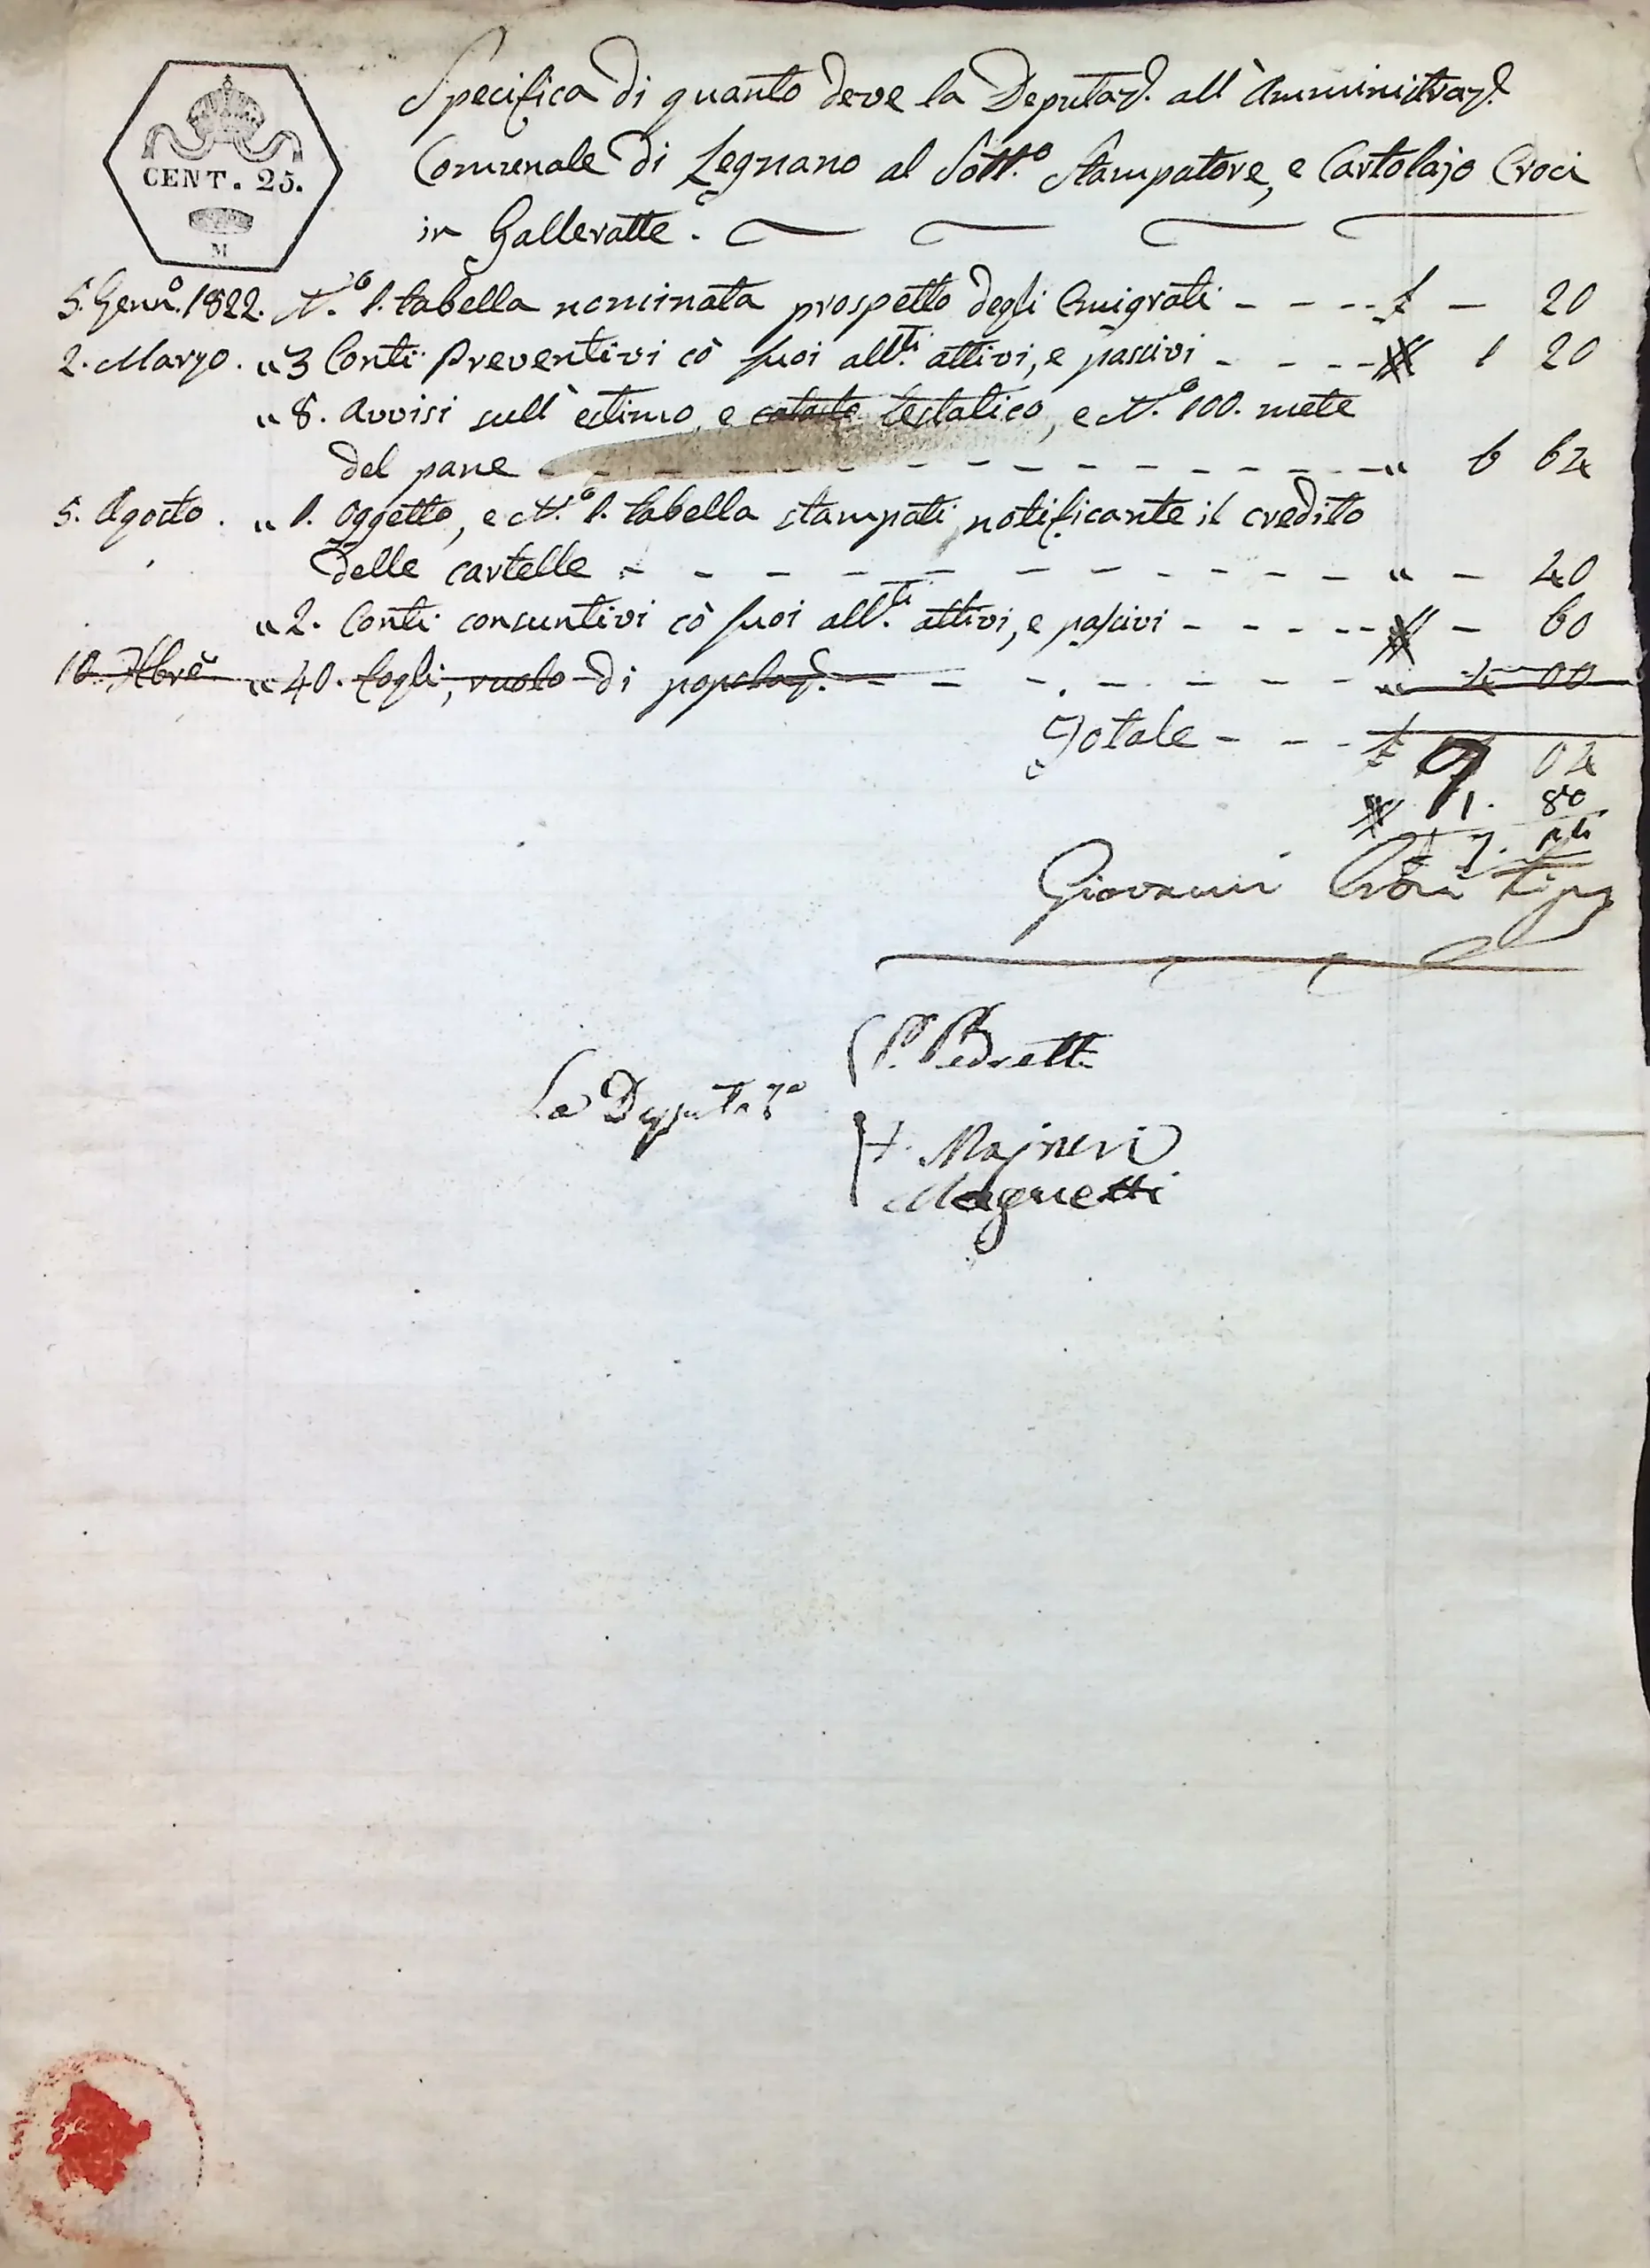 CENT. 25.
M
Specifica di quanto deve la Deputaz.e all' Amministraz.e
Comunale di Legnano al Sott.o Stampatore, e Cartolajo Croci
in Galleratte.
5. Genn.o 1822. N.o 1. tabella nominata prospetto degli Emigrati - - - - £ - 20
2. Marzo. " 3 Conti Preventivi cò suoi all.ti attivi, e passivi - - - - 1 20
" 8. Avvisi sull' estimo, e testatico, e N.o 100. mete
del pane - - - - - - - - - - - - - - " 6 64
5. Agosto. " 1. Oggetto, e N.o 1. tabella stampati, notificante il credito
delle cartelle - - - - - - - - - - - - - " - 40
" 2. Conti consuntivi cò suoi all.ti attivi, e passivi - - - - - - 60
10. 7bre " 40. fogli, ruolo di popolaz.e - - - - - - - - " 4 00
Totale - - - £ 9 04
1. 80
7.
Giovanni Croci tipog
La Deputaz.e
P. Pedretti
Majneri
Magnetti